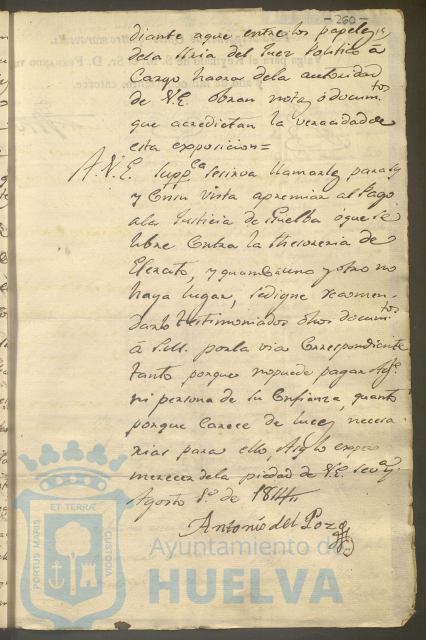 - 260 -
diante aque entre los papeles
dela Sria del Juez Politico à
Cargo haora dela autoridad
de V.E. obran notas ó docum.tos
que acreditan la veracidad de
esta exposicion =
A.V.E. Supp.ca se sirva llamarlos para sy
y Consu vista apremiar al Pago
ala Justicia de Huelba ó que se
libre Contra la thesoreria de
Egercito, y quando uno y otro no
haya lugar, se digne recomen-
dar testimoniados dhos docum.tos
á S.M. por la via Correspondiente
tanto porque no puede pagar
ni persona de su Confianza, quanto
porque Carece de luces necesa-
rias para ello, Asi lo espera
merecer dela piedad de V.E. Sev.a y
Agosto 1.o de 1814
Antonio del Pozo
PORTUS MARIS ET TERRÆ CUSTODIA
Ayuntamiento de
HUELVA